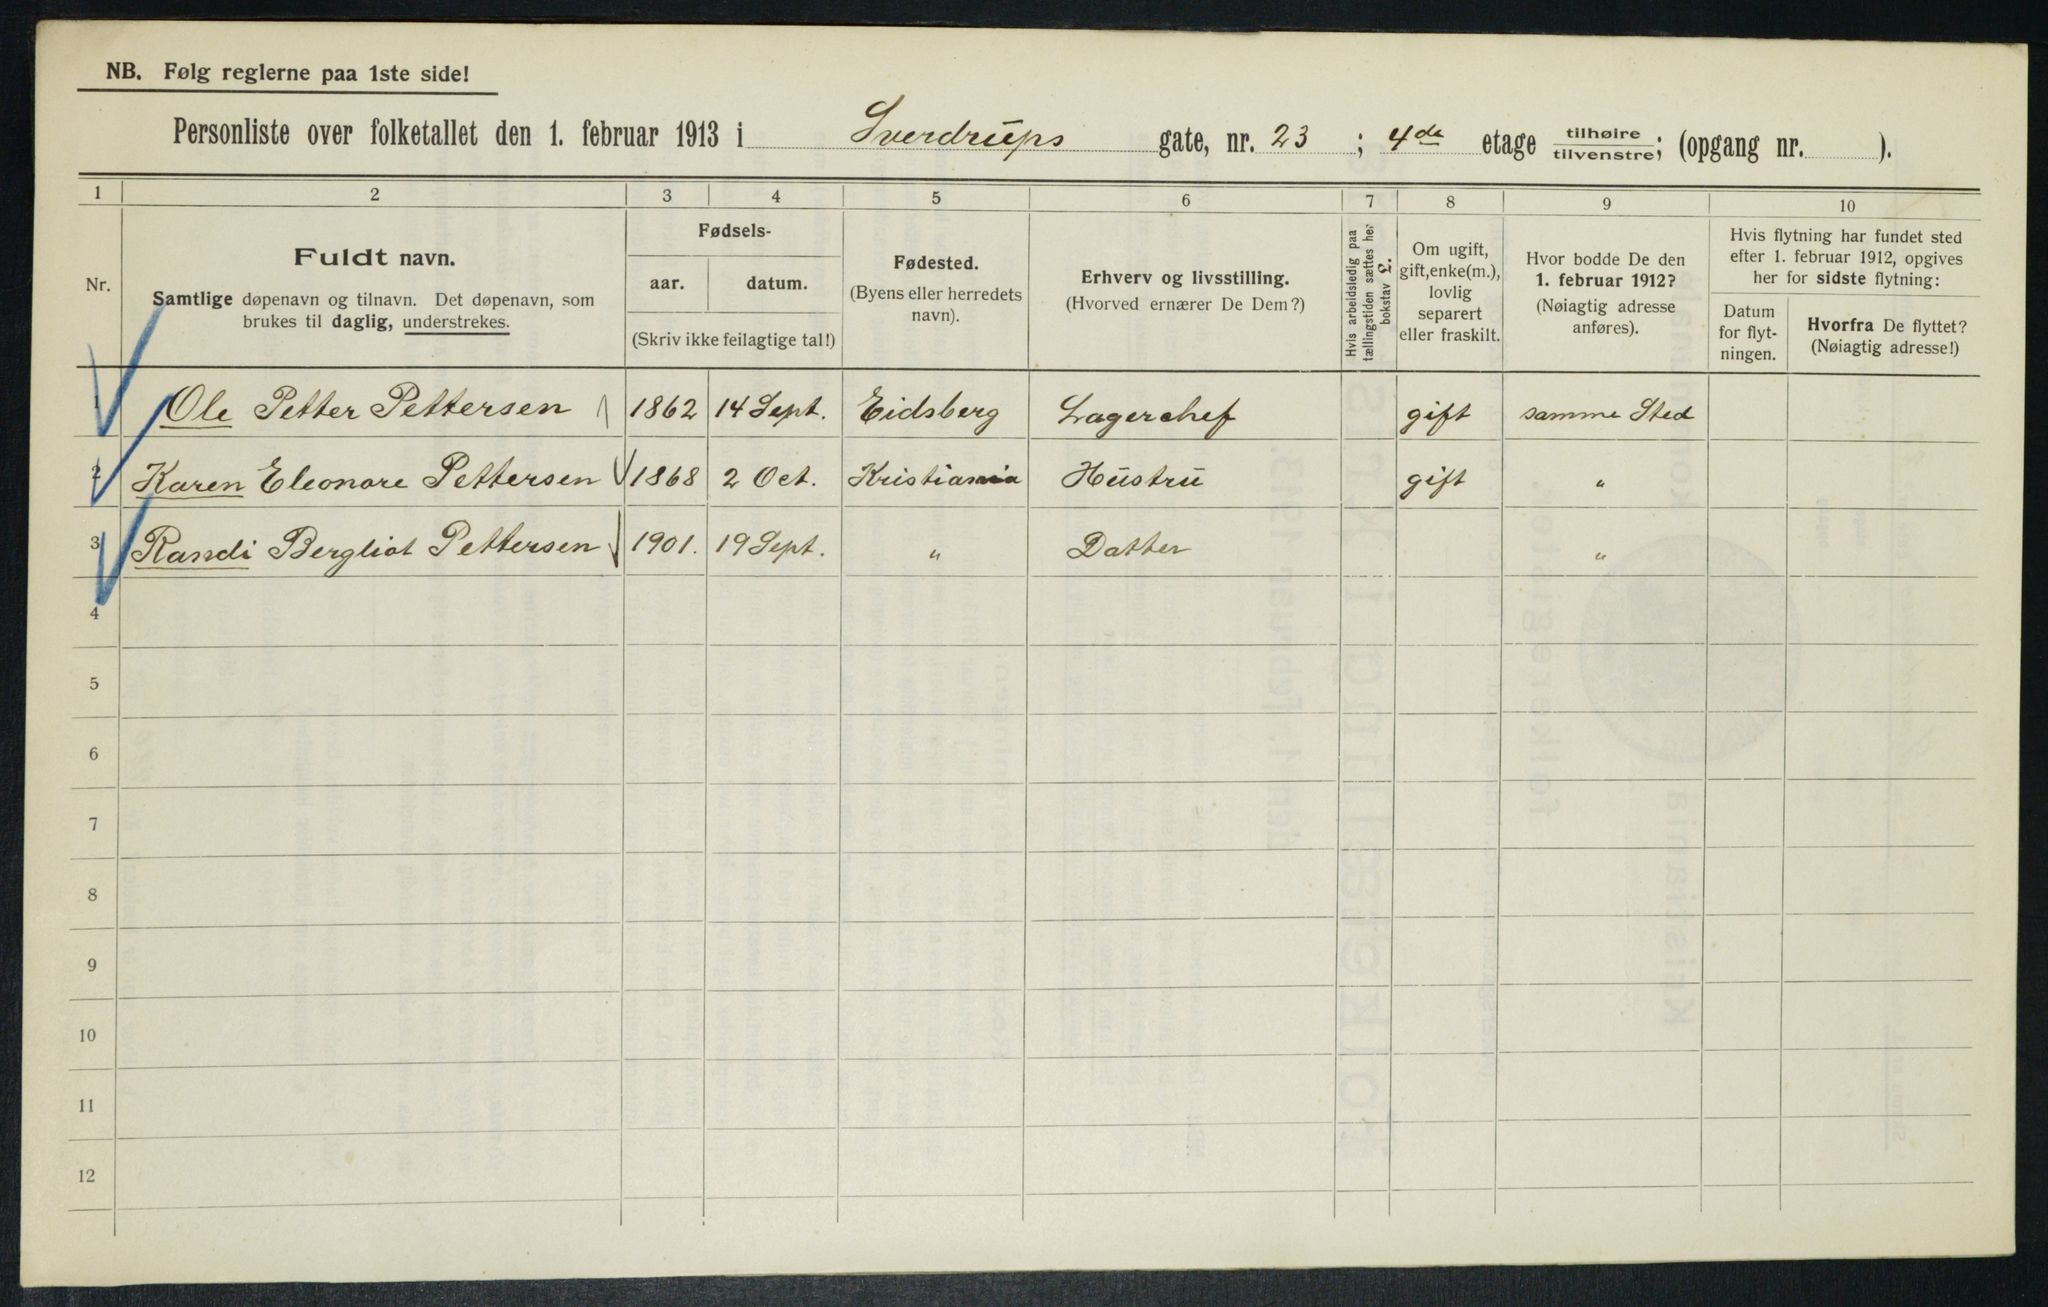 NB. Følg reglerne paa 1ste side!
Personliste over folketallet den 1. februar 1913 i Sverdrups gate, nr. 23 ; 4de etage tilhøire/tilvenstre; (opgang nr. ).
1 2 3 4 5 6 7 8 9 10
Nr.
Fuldt navn.
Samtlige døpenavn og tilnavn. Det døpenavn, som
brukes til daglig, understrekes.
Fødsels-
aar. datum.
(Skriv ikke feilagtige tal!)
Fødested.
(Byens eller herredets
navn).
Erhverv og livsstilling.
(Hvorved ernærer De Dem?)
Hvis arbeidsledig paa
tællingstiden sættes her
bokstav L.
Om ugift,
gift, enke(m.),
lovlig
separert
eller fraskilt.
Hvor bodde De den
1. februar 1912?
(Nøiagtig adresse
anføres).
Hvis flytning har fundet sted
efter 1. februar 1912, opgives
her for sidste flytning:
Datum
for flyt-
ningen.
Hvorfra De flyttet?
(Nøiagtig adresse!)
1 Ole Petter Pettersen 1862 14 Sept. Eidsberg Lagerchef gift samme Sted
2 Karen Eleonore Pettersen 1868 2 Oct. Kristiania Hustru gift "
3 Randi Bergliot Pettersen 1901. 19 Sept. " Datter "
4
5
6
7
8
9
10
11
12